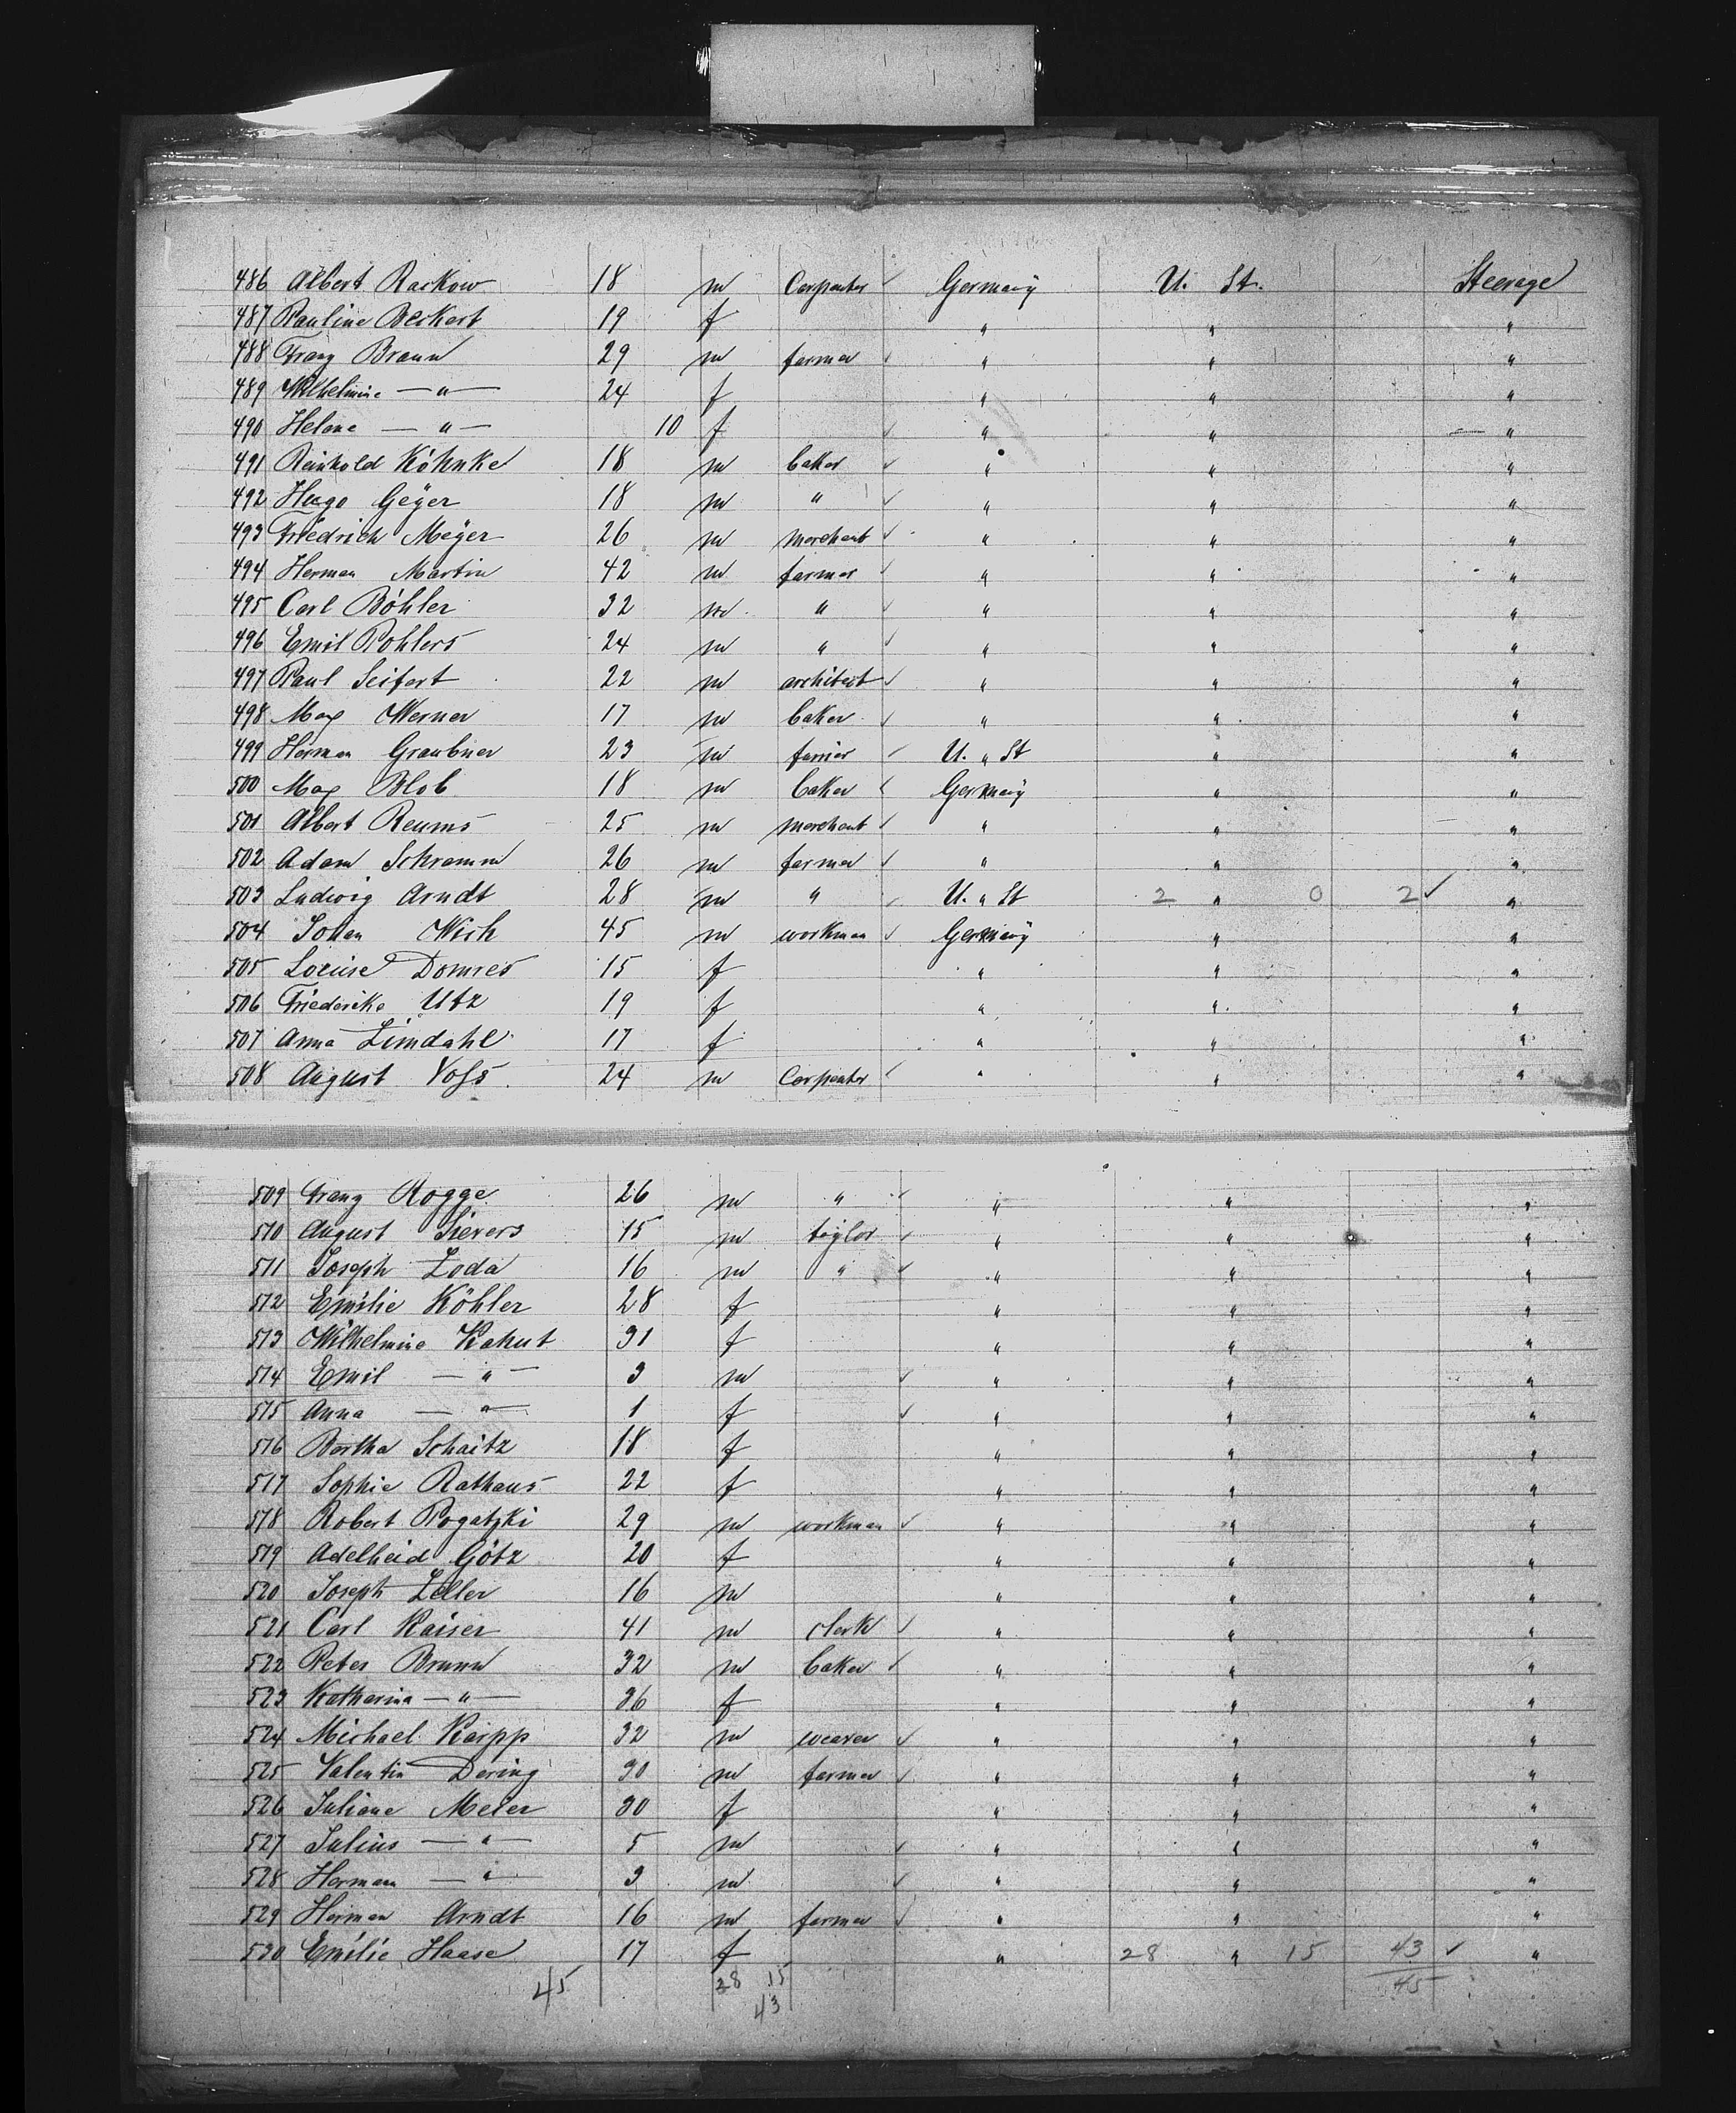 486 Albert Raskow 18 m Carpenter ✓ Germany U. St. Steerage
487 Pauline Beckert 19 f " " "
488 Franz Braun 29 m farmer ✓ " " "
489 Wilhelmine — " — 24 f " " "
490 Helene — " — 10 f ✓ " " "
491 Reinhold Köhnke 18 m baker ✓ " " "
492 Hugo Geÿer 18 m " ✓ " " "
493 Friedrich Meÿer 26 m merchant ✓ " " "
494 Herman Martin 42 m farmer ✓ " " "
495 Carl Böhler 32 m " ✓ " " "
496 Emil Pohlers 24 m " ✓ " " "
497 Paul Seifert 22 m architect ✓ " " "
498 Max Werner 17 m baker ✓ " " "
499 Herman Graubner 23 m farrier ✓ U. " St " "
500 Max Blob 18 m baker ✓ Germany " "
501 Albert Reums 25 m merchant ✓ " " "
502 Adam Schramm 26 m farmer ✓ " " "
503 Ludwig Arndt 28 m " ✓ U. " St 2 " 0 2 ✓ "
504 Johan Wish 45 m workman ✓ Germany " "
505 Louise Domres 15 f " " "
506 Friederike Utz 19 f " " "
507 Anna Limdahl 17 f " " "
508 August Voss 24 m Carpenter ✓ " " "
509 Franz Rogge 26 m " ✓ " " "
510 August Sievers 15 m taylor ✓ " " "
511 Joseph Zoda 16 m " ✓ " " "
512 Emilie Köhler 28 f " " "
513 Wilhelmine Kakut 31 f " " "
514 Emil — " — 3 m ✓ " " "
515 Anna — " — 1 f ✓ " " "
516 Bertha Schaitz 18 f " " "
517 Sophie Rathaus 22 f " " "
518 Robert Pogatzki 29 m workman ✓ " " "
519 Adelheid Götz 20 f " " "
520 Joseph Zeller 16 m " " "
521 Carl Kaiser 41 m clerk ✓ " " "
522 Peter Brunn 32 m baker ✓ " " "
523 Katharina — " — 36 f " " "
524 Michael Karpp 32 m weaver ✓ " " "
525 Valentin Dering 30 m farmer ✓ " " "
526 Juliane Meier 30 f " " "
527 Julius — " — 5 m ✓ " " "
528 Herman — " — 3 m ✓ " " "
529 Herman Arndt 16 m farmer ✓ " " "
530 Emilie Haase 17 f " 28 " 15 43 ✓ "
45 28 15 45
43